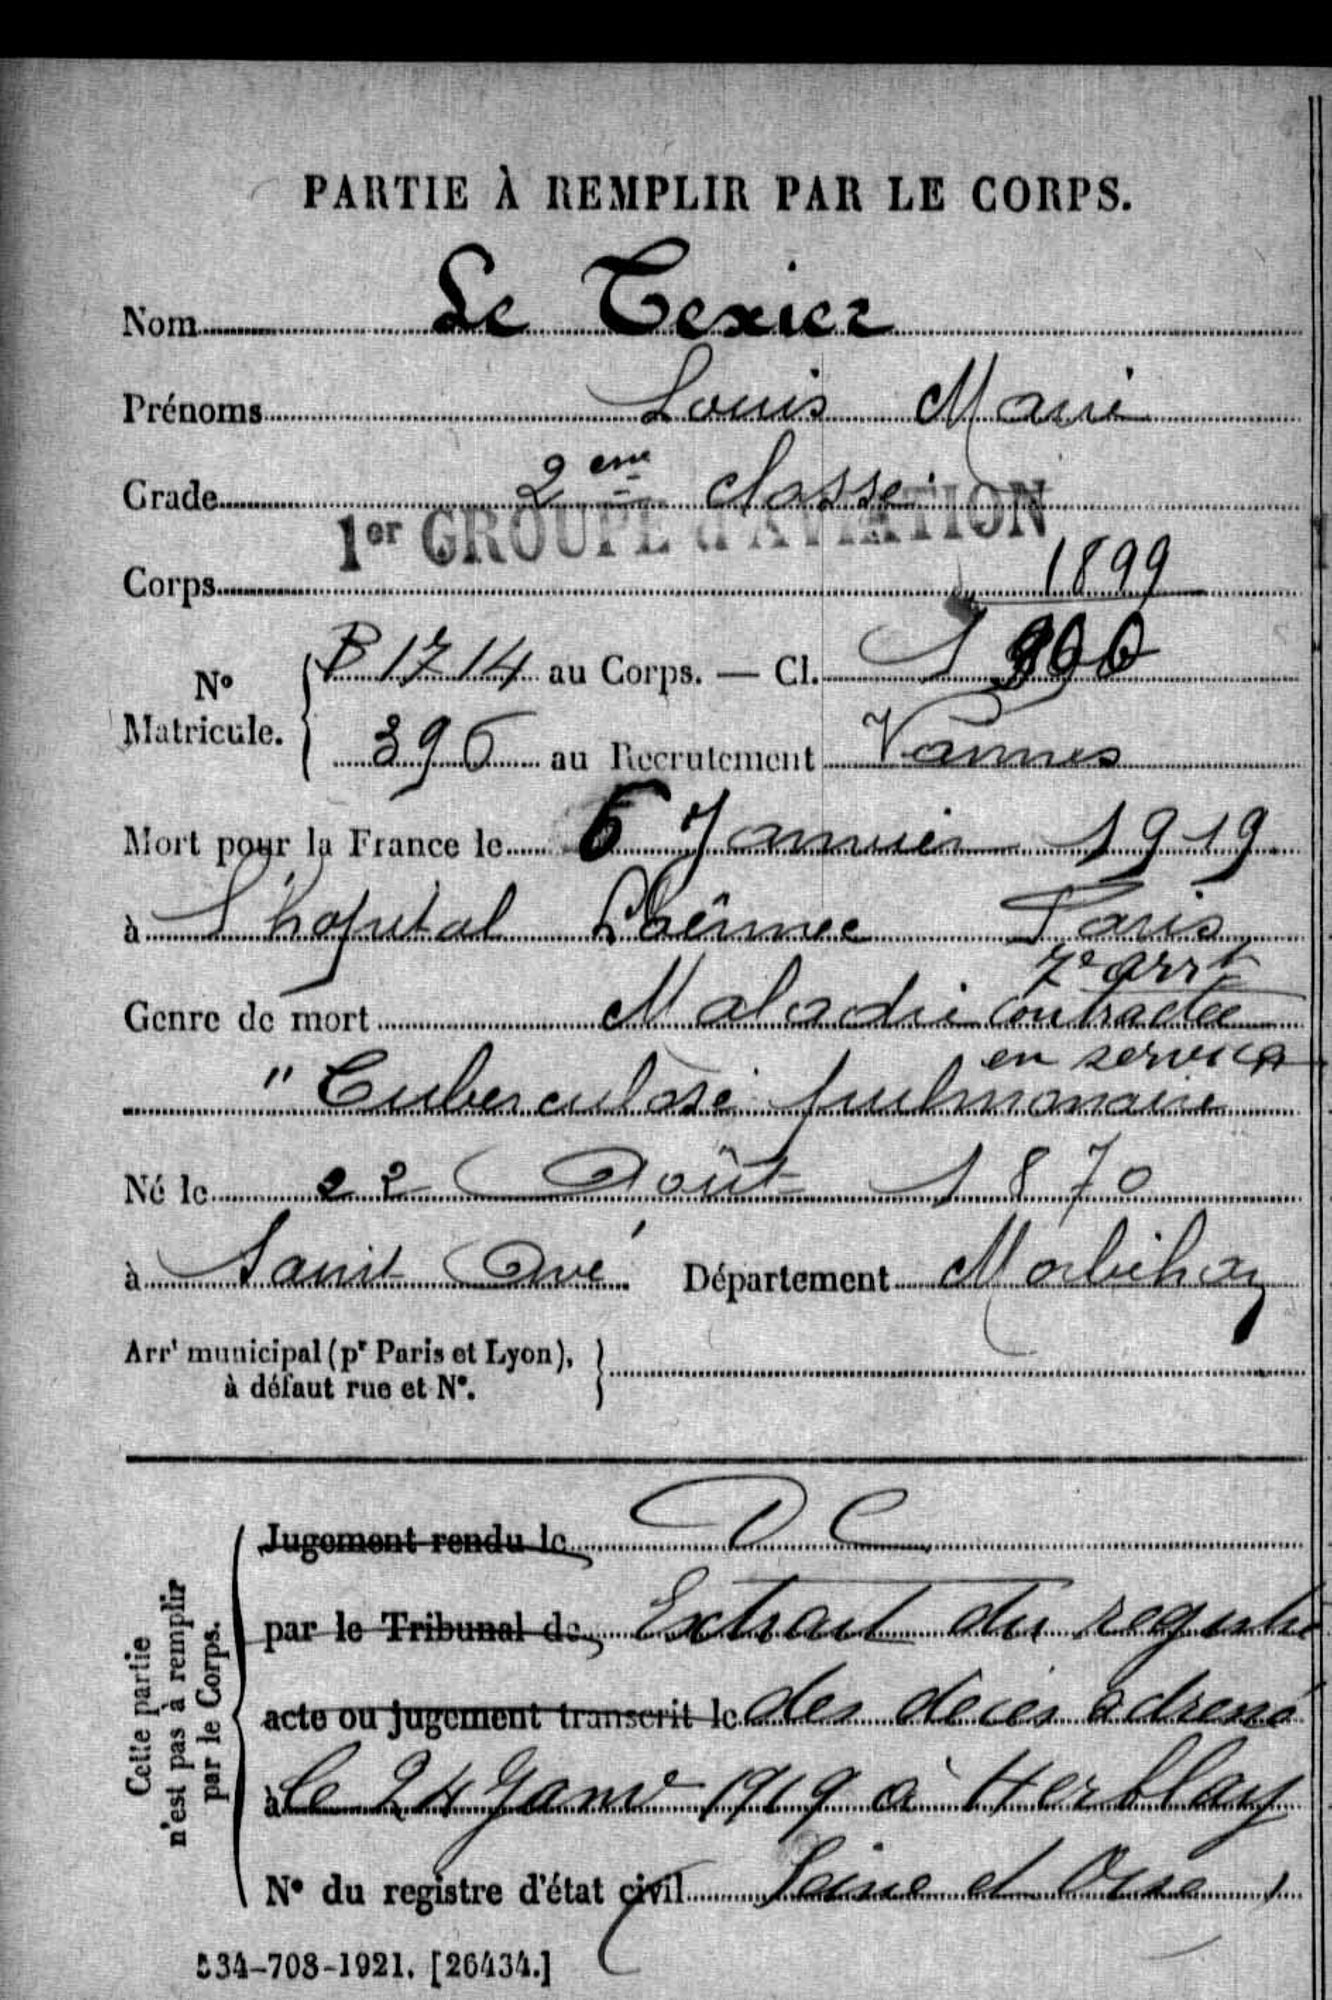 PARTIE À REMPLIR PAR LE CORPS.
Nom Le Texier
Prénoms Louis Marie
Grade 2eme classe
1er GROUPE d'AVIATION
Corps 1899
N° Matricule. P 1714 au Corps. — Cl. 1900
396 au Recrutement Vannes
Mort pour la France le 6 Janvier 1919
à l'hopital Laënnec Paris
7e arrt
Genre de mort Maladie contractée
en service
" Tuberculose pulmonaire
Né le 22 Août 1870
à Saint Avé Département Morbihan
Arrt municipal (pr Paris et Lyon),
à défaut rue et N°.
Cette partie
n'est pas à remplir
par le Corps.
Jugement rendu le D C
par le Tribunal de Extrait du registre
acte ou jugement transcrit le des décès adressé
à le 24 Janv 1919 à Herblay
N° du registre d'état civil (Seine et Oise)
534-708-1921. [26434.]